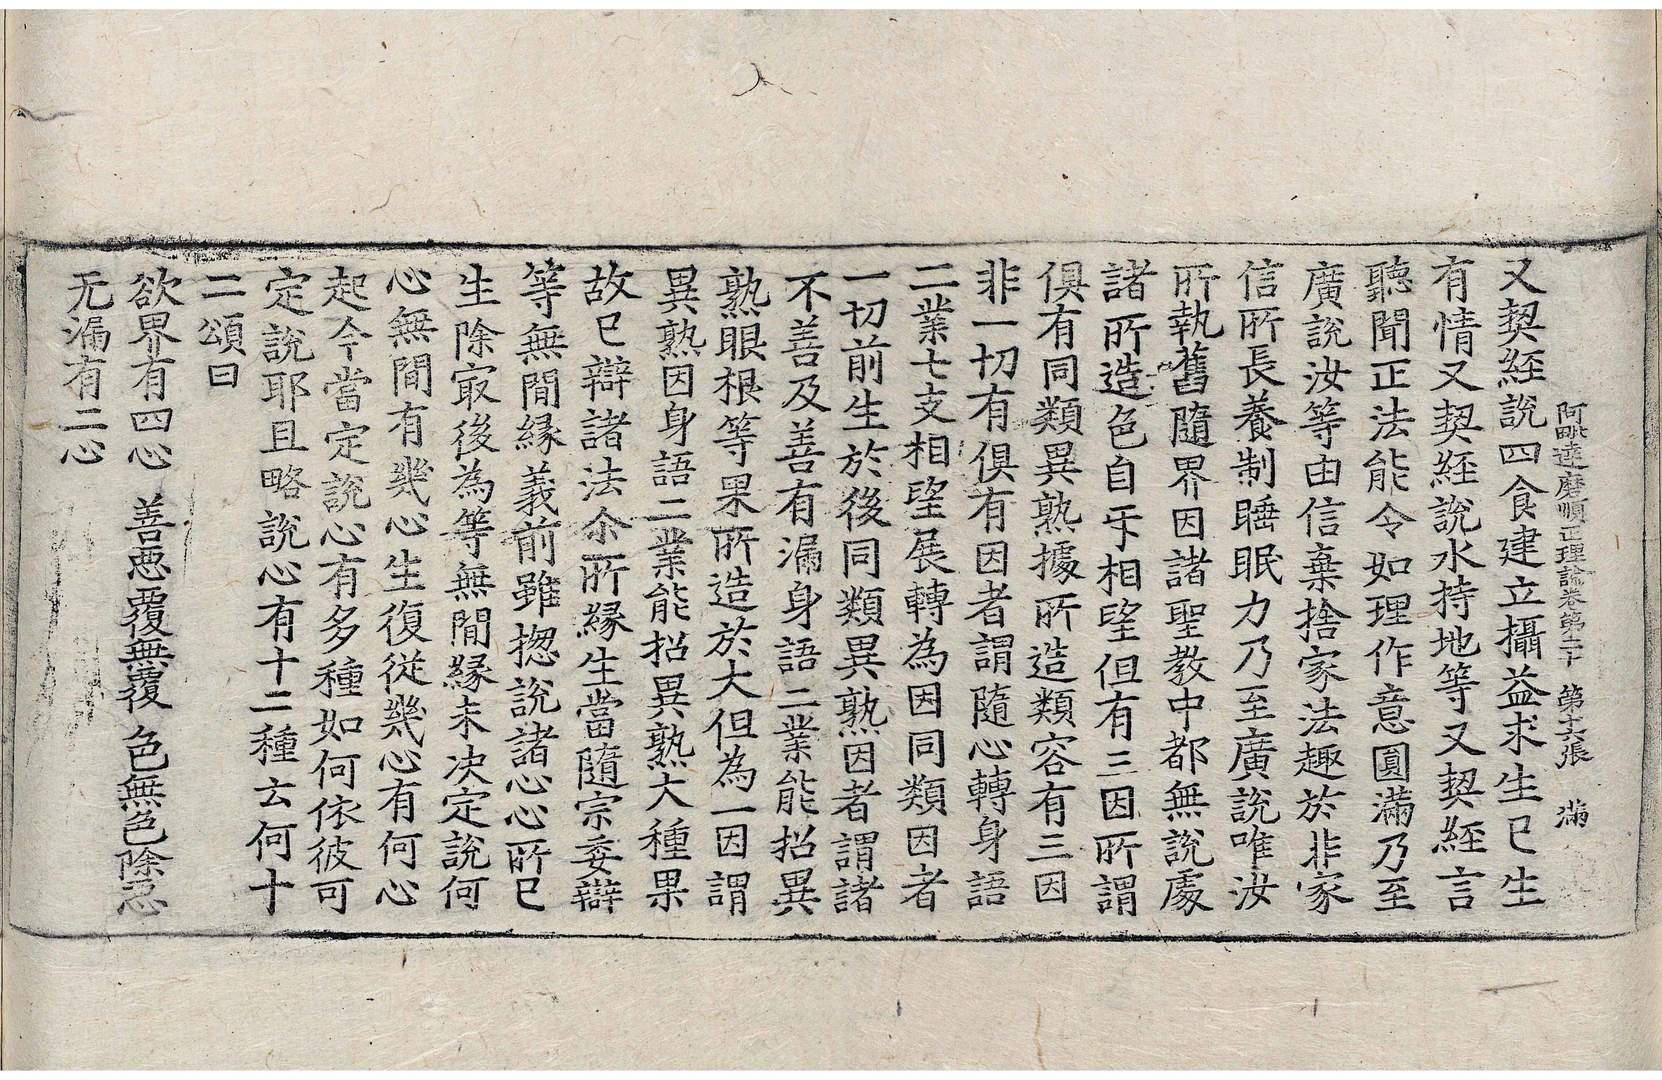 阿毗達磨順正理論卷第二十　第十六張　滿
又契經說四食建立攝益求生已生
有情又契經說水持地等又契經言
聽聞正法能令如理作意圓滿乃至
廣說汝等由信棄捨家法趣於非家
信所長養制睡眠力乃至廣說唯汝
所執舊隨界因諸聖教中都無說處
諸所造色自㸦相望但有三因所謂
俱有同類異熟據所造類容有三因
非一切有俱有因者謂隨心轉身語
二業七支相望展轉為因同類因者
一切前生於後同類異熟因者謂諸
不善及善有漏身語二業能招異
熟眼根等果所造於大但為一因謂
異熟因身語二業能招異熟大種果
故已辯諸法尒所緣生當隨宗委辯
等無間緣義前雖揔說諸心心所已
生除㝡後為等無間緣未決定說何
心無間有幾心生復從幾心有何心
起今當定說心有多種如何依彼可
定說耶且略說心有十二種云何十
二頌曰
欲界有四心　善惡覆無覆　色無色除惡
无漏有二心